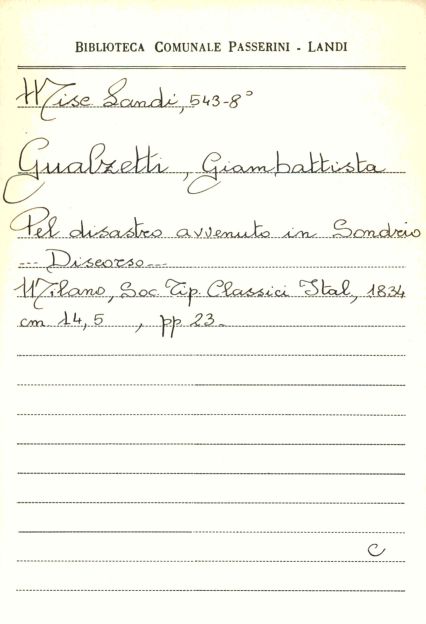 BIBLIOTECA COMUNALE PASSERINI - LANDI
Misc Landi, 543-8°
Gualzetti, Giambattista
Pel disastro avvenuto in Sondrio
--- Discorso---
Milano, Soc Tip. Classici Ital, 1834
cm 14,5 , pp 23-
C